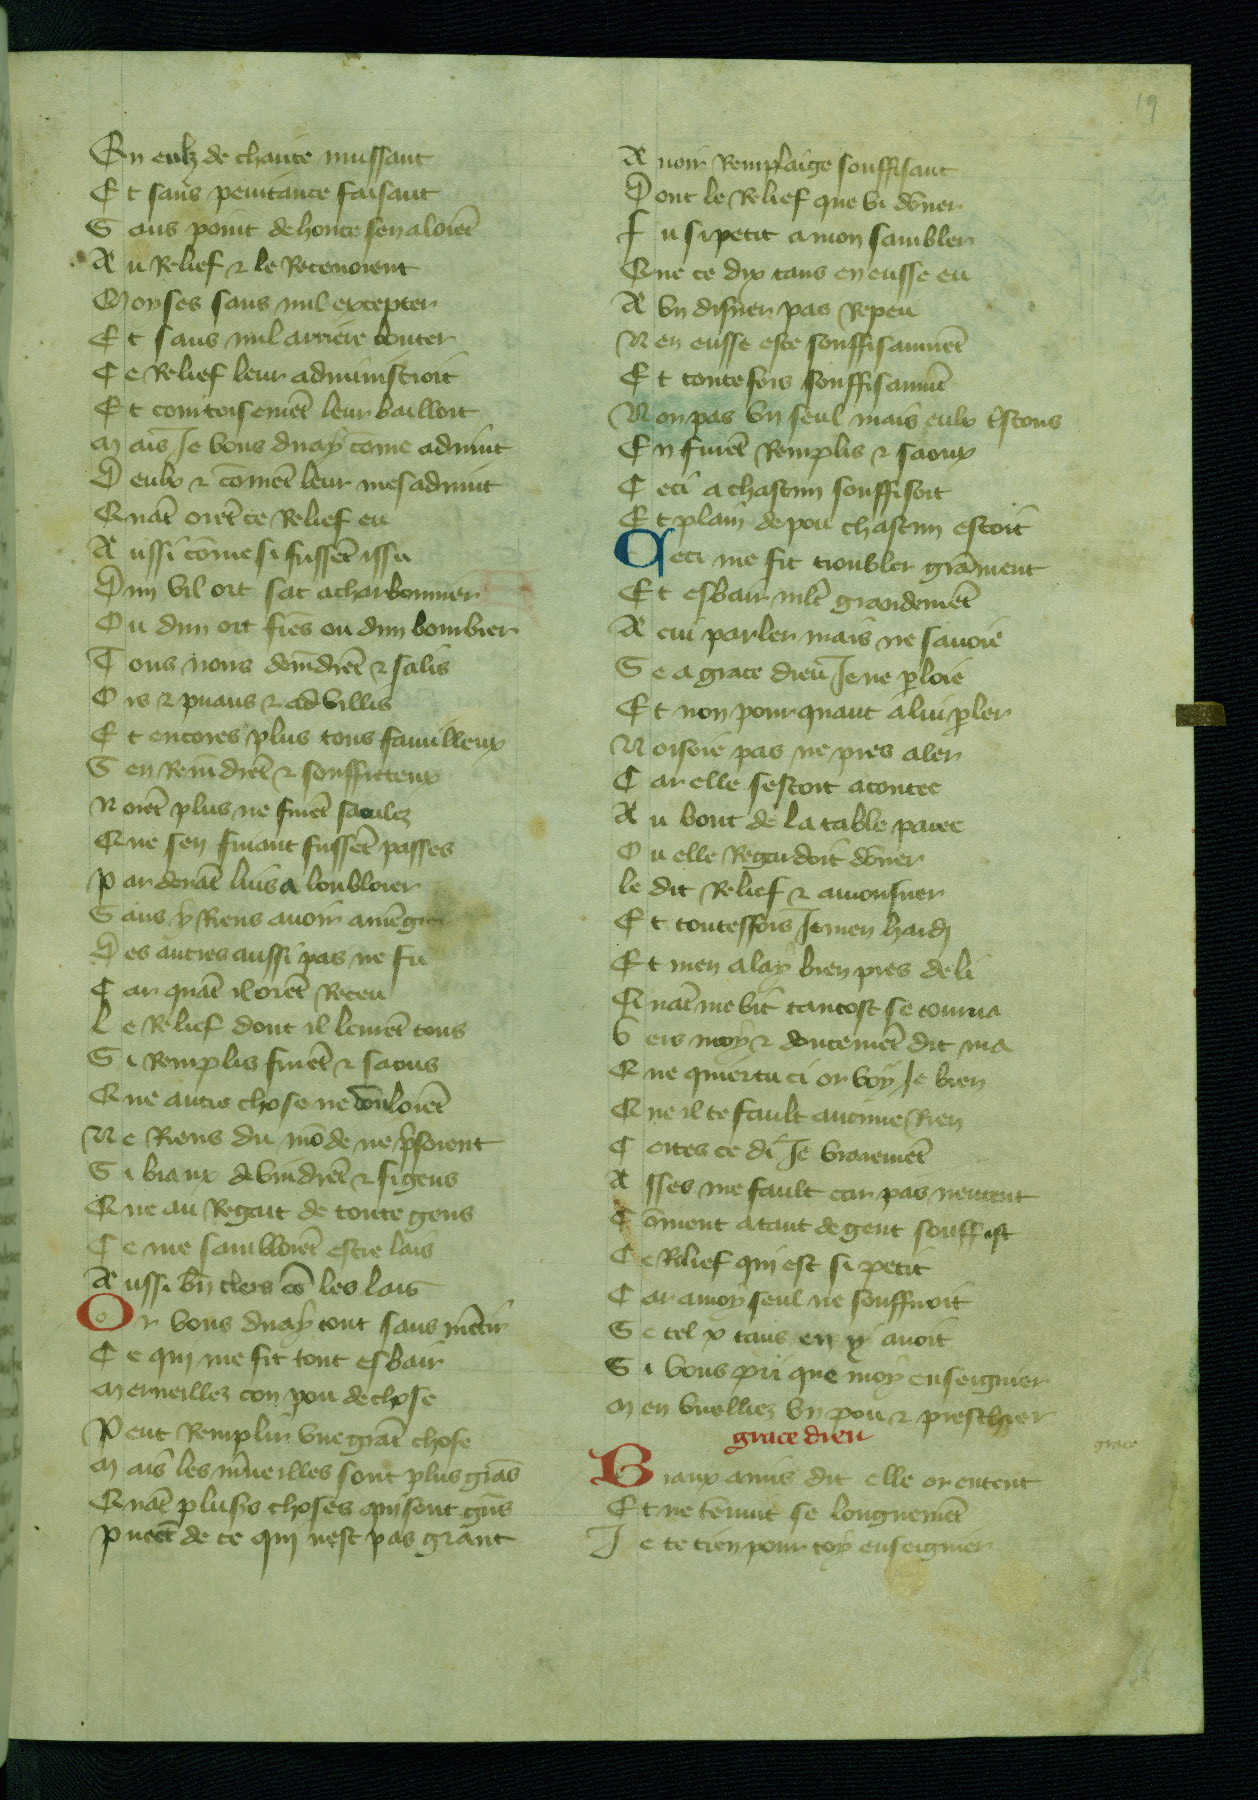 19
En eulz de charite mussant
Et sans penitance faisant
Sans point de honte sen aloiēt
Au Relief ⁊ le Receuoient
Moyses sans nul excepter
Et sans nul arriere bouter
Ce Relief leur administroit
Et courtoisemēt leur bailloit
Mais Je vous diray cōme aduint
Deulx ⁊ cōmēt leur mesaduint
Quāt orēt ce Relief eu
Aussi cōme si fussēt issu
Dun vil ort sac a charbonnier
Ou dun ort fiēs ou dun bourbier
Tous noirs deuīdrēt ⁊ salis
Ors ⁊ puans ⁊ aduillis
Et encores plus tous familleux
Sen Reuīdrēt ⁊ souffretteux
Norēt plus ne furēt saoulez
Que sen fuiant fussēt passes
Par deuāt luis a loubloier
Sans y Riens auoir a mēgier
Des autres aussi pas ne fu
Car quāt il orēt Receu
Le Relief dont il leurēt tous
Si Remplis furēt ⁊ saous
Que autre chose ne vouloiēt
Ne Riens du mōde ne p̄soient
Si biaux deuindrēt ⁊ si gens
Que au Regart de toute gens
Ce me sambloiēt estre lais
Aussi biē clers cō les lais
Or vous diray tout sans mētir
Ce qui me fit tout esbair
Merueillez con pou de chose
Peut Remplir vne grāt chose
Mais les m̄ueilles sont plus grās
Quāt plus̄s choses qui sont grās
Puēt de ce qui nest pas grant
Auoir Remplaige souffisant
Dont le Relief que vi dōner
Fu si petit a mon sambler
Que ce dix tans en eusse eu
A vn disner pas Repeu
Nen eusse este souffisanmēt
Et toutefois souffisanmēt
Non pas vn seul mais eulx trestous
En furēt Remplis ⁊ saoux
Ceci a chascun souffisoit
Et plain de pou chascun estoit
Ceci me fit troubler grāment
Et esbair mlt̄ grandemēt
A cui parler mais ne sauoie
Se a grace dieu Je ne p̄loie
Et non pourquant a lui p̄ler
Nosoie pas ne pres aler
Car elle sestoit acoutee
Au bout de la table paree
Ou elle Regardoit dōner
le dit Relief ⁊ aumosner
Et touteffois Je men hardi
Et men alay bien pres de li
Quāt me vit tantost se tourna
Vers moy ⁊ doucemēt dit ma
Que quiers tu ci or voy Je bien
Que il te fault aucune Rien
Certes ce di Je vraiemēt
Asses me fault car pas nentent
Cōment a tant de gent souffist
Ce Relief qui est si petit
Car a moy seul ne souffiroit
Se tel x tans en y auoit
Si vous pri que moy enseignier
Men vuelliez vn pou ⁊ preschier
grace dieu
grace
Biaux amis dit elle or entent
Et ne tēnuit se longuemēt
Je te tien pour toy enseignier